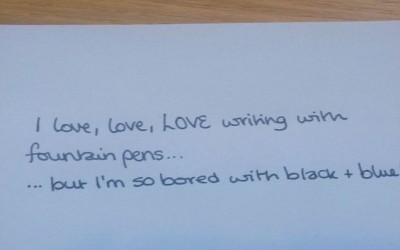 I love, love, LOVE writing with
fountain pens...
... but I'm so bored with black + blue